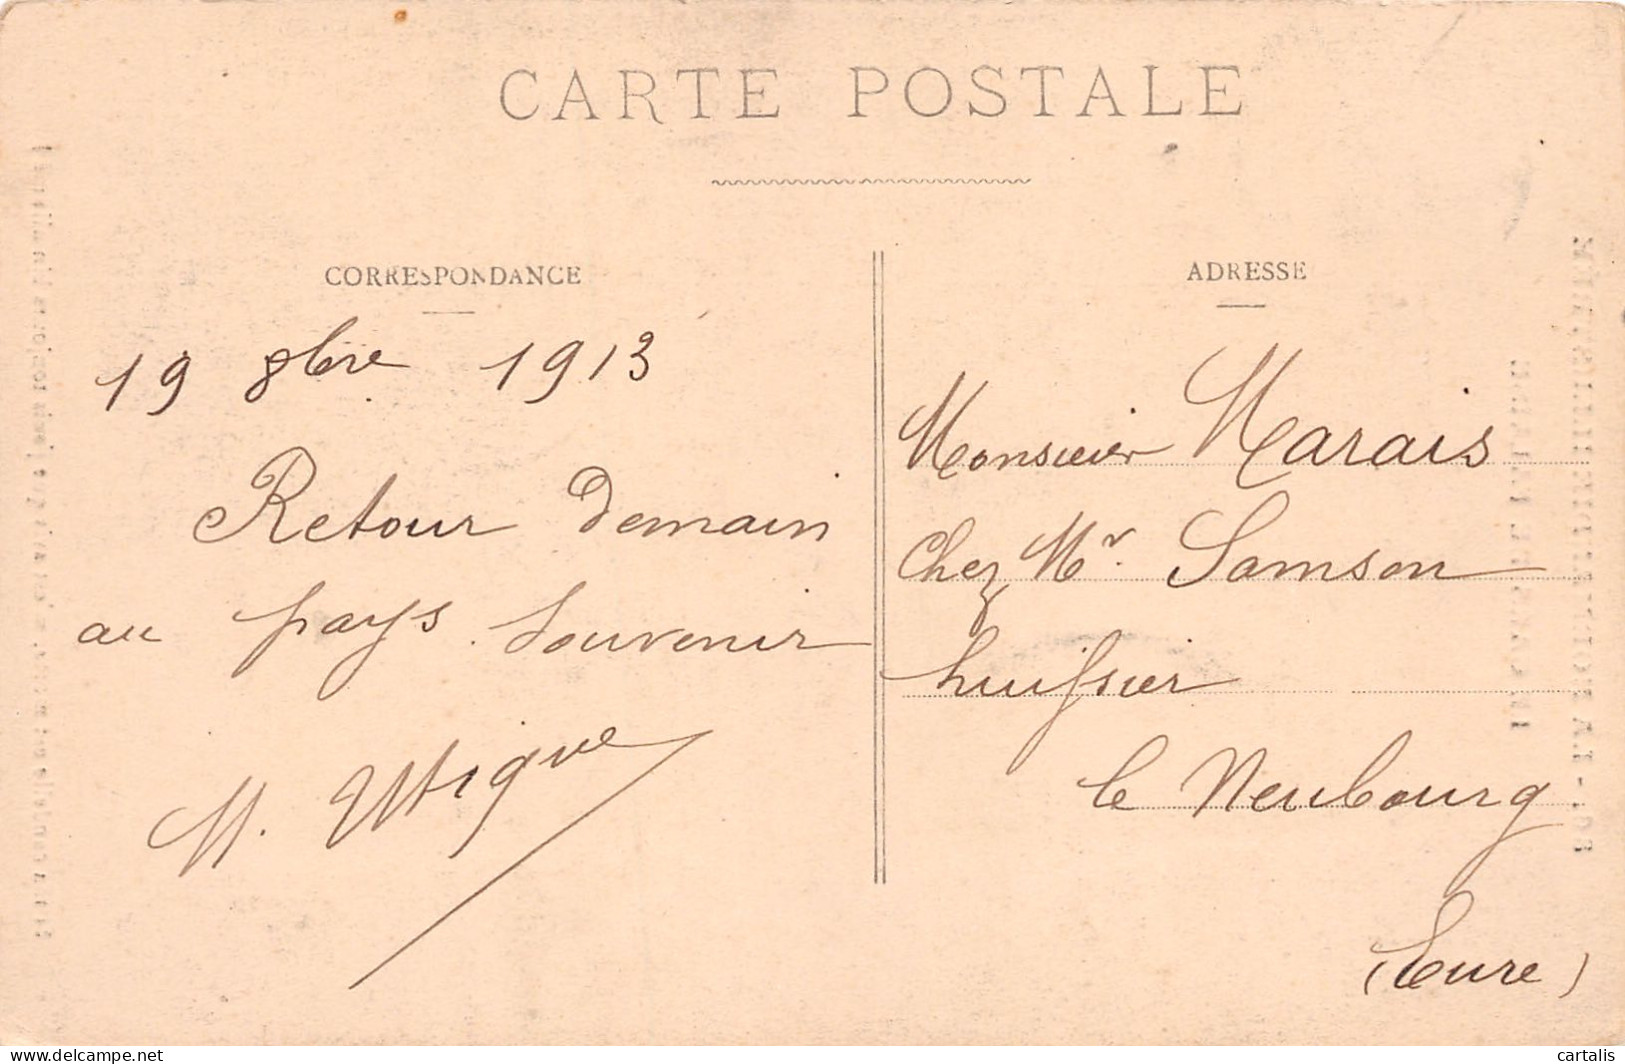 CARTE POSTALE
CORRESPONDANCE
19 8bre 1913
Retour demain
au pays. Souvenir
ADRESSE
Monsieur Marais
Chez Mr. Samson
huissier
le Neubourg
(Eure)
delcampe.net
cartalis